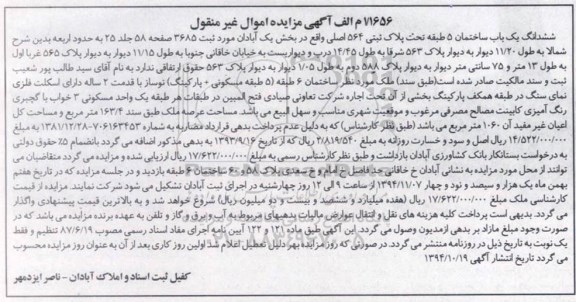 ۷۱۶۵۶/ م الف آگهی مزایده اموال غیر منقول
ششدانگ یک باب ساختمان ۵ طبقه تحت پلاک ثبتی ۵۶۴ اصلی واقع در بخش یک آبادان مورد ثبت ۳۶۸۵ صفحه ۵۸ جلد ۲۵ به حدود اربعه بدین شرح
شمالا به طول ۱۱/۲۰ دیوار به دیوار پلاک ۵۶۳ شرقا به طول ۱۴/۴۵ درب و دیواریست به خیابان خاقانی جنوبا به طول ۱۱/۱۵ دیوار به دیوار پلاک ۵۶۵ غربا اول
به طول ۱۳ متر و ۷۵ سانتی متر دیوار به دیوار پلاک ۵۸۸ دوم به طول ۷۰۵ دیوار به دیوار پلاک ۵۶۳ حقوق ارتفاقی ندارد به نام آقای سید طالب پور شعیب
ثبت و سند مالکیت صادر شده است(طبق سند) ملک مورد نظر ساختمان ۶ طبقه (۵ طبقه مسکونی + پارکینگ) نوساز با قدمت ۲ ساله دارای اسکلت فلزی
نمای سنگ در طبقه همکف پارکینگ بخشی از آن تحت اجاره شرکت تعاونی صیادی فتح المبین در طبقات هر طبقه یک واحد مسکونی ۳ خواب با گچبری
رنگ آمیزی کابینت مصالح مصرفی مرغوب و موقعیت شهری مناسب و سهل البیع می باشد. مساحت عرصه ملک طبق سند ۱۶۳/۴ متر مربع و مساحت کل
اعیان غیر مفید آن ۱۰۶۰ متر مربع می باشد (طبق نظر کارشناس) که به دلیل عدم پرداخت بدهی قرارداد مضاربه به شماره ۷۰۶۱۶۳۴۵۳-۱۳۸۱/۱۲/۲۸ به مبلغ
۱۴/۵۲۲/۰۰۰/۰۰۰ ریال اصل و سود و خسارت روزانه به مبلغ ۳/۸۱۹/۵۴۰ ریال که از تاریخ ۱۳۹۳/۹/۱۶ به بدهی مذکور اضافه می گردد بانضمام ۵٪ حقوق دولتی
به درخواست بستانکار بانک کشاورزی آبادان بازداشت و طبق نظر کارشناس رسمی به مبلغ ۱۷/۶۲۲/۰۰۰/۰۰۰ ریال ارزیابی شده و مزایده می گردد متقاضیان می
توانند از محل مورد مزایده به نشانی آبادان خ خاقانی حد فاصل خ امام و خ سعدی پلاک ۵۸ و ۶۰ ساختمان ۶ طبقه بازدید و در جلسه مزایده که در تاریخ هفتم
بهمن ماه یک هزار و سیصد و نود و چهار ۱۳۹۴/۱۱/۰۷ از ساعت ۹ الی ۱۲ روز چهارشنبه در اجرای ثبت آبادان تشکیل می شود شرکت نمایند. مزایده از قیمت
کارشناسی ملک مبلغ ۱۷/۶۲۲/۰۰۰/۰۰۰ ریال (هفده میلیارد و ششصد و بیست و دو میلیون ریال) شروع خواهد شد و به بالاترین قیمت پیشنهادی واگذار
می گردد. بدیهی است پرداخت کلیه هزینه های نقل و انتقال عوارض مالیات بدهیهای مربوط به آب و برق و گاز و تلفن به عهده برنده مزایده می باشد که در
صورت وجود مبلغ مازاد بر بدهی از مدیون وصول می گردد. این آگهی طبق ماده ۱۲۱ و ۱۲۲ آیین نامه اجرای مفاد اسناد رسمی مصوب ۸۷/۶/۱۹ تنظیم و فقط
یک نوبت به تاریخ ذیل در روزنامه منتشر می گردد. در صورتی که روز مزایده بهر دلیل تعطیل اعلام شد اولین روز کاری بعد از آن به عنوان روز مزایده محسوب
می گردد تاریخ انتشار آگهی ۱۳۹۴/۱۰/۱۹
کفیل ثبت اسناد و املاک آبادان - ناصر ایزدمهر